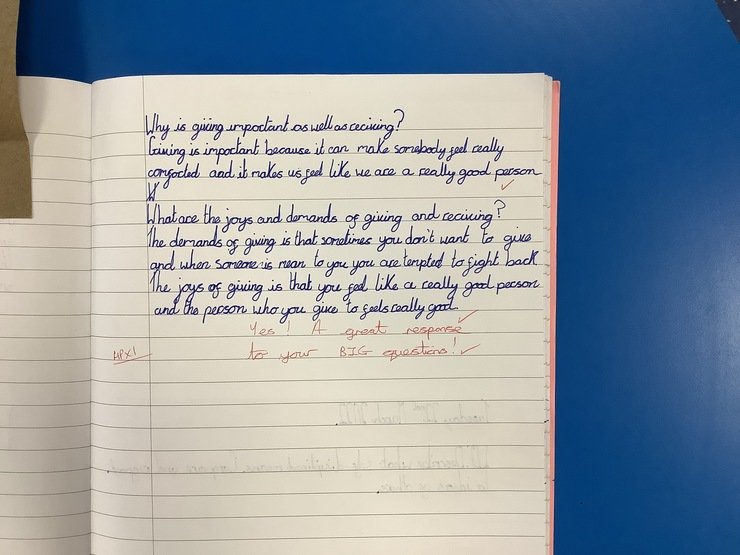 Why is giving important as well as reciving?
Giving is important because it can make somebody feel really
comforted and it makes us feel like we are a really good person
W
What are the joys and demands of giving and reciving?
The demands of giving is that sometimes you don't want to give
and when someone is mean to you you are tempted to fight back
The joys of giving is that you feel like a really good person
and the person who you give to feels really good.
Yes! A great response
to your BIG questions!
HPX1